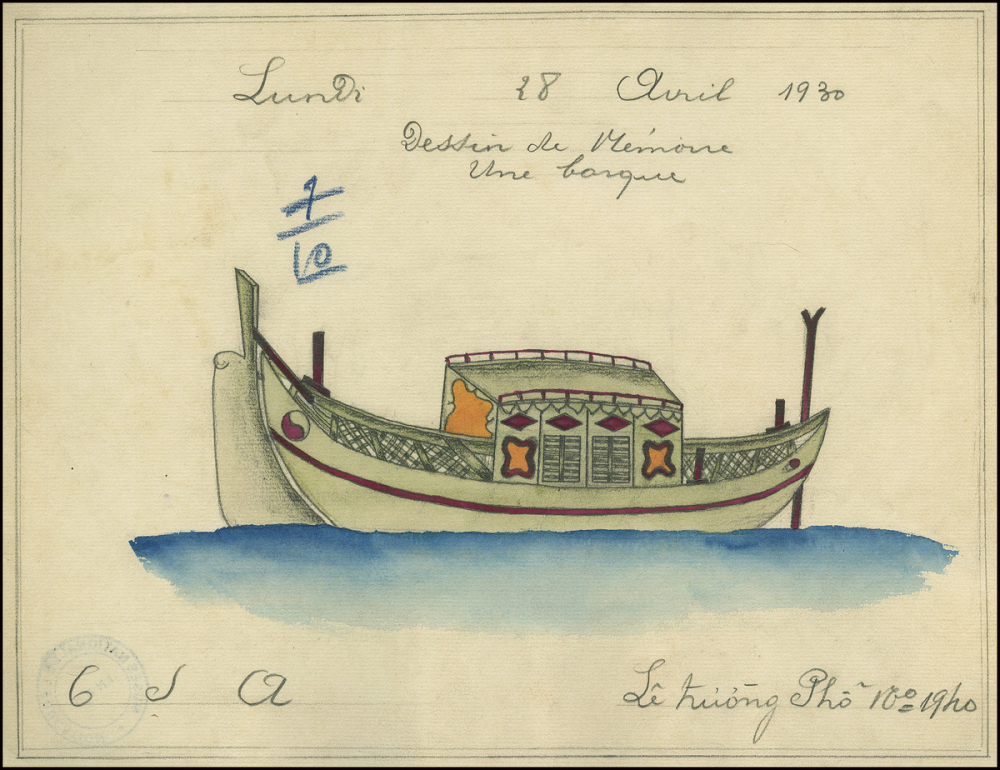 Lundi 28 Avril 1930
Dessin de Mémoire
Une barque
7
10
6 S A
Lê Trường Phổ No 1940